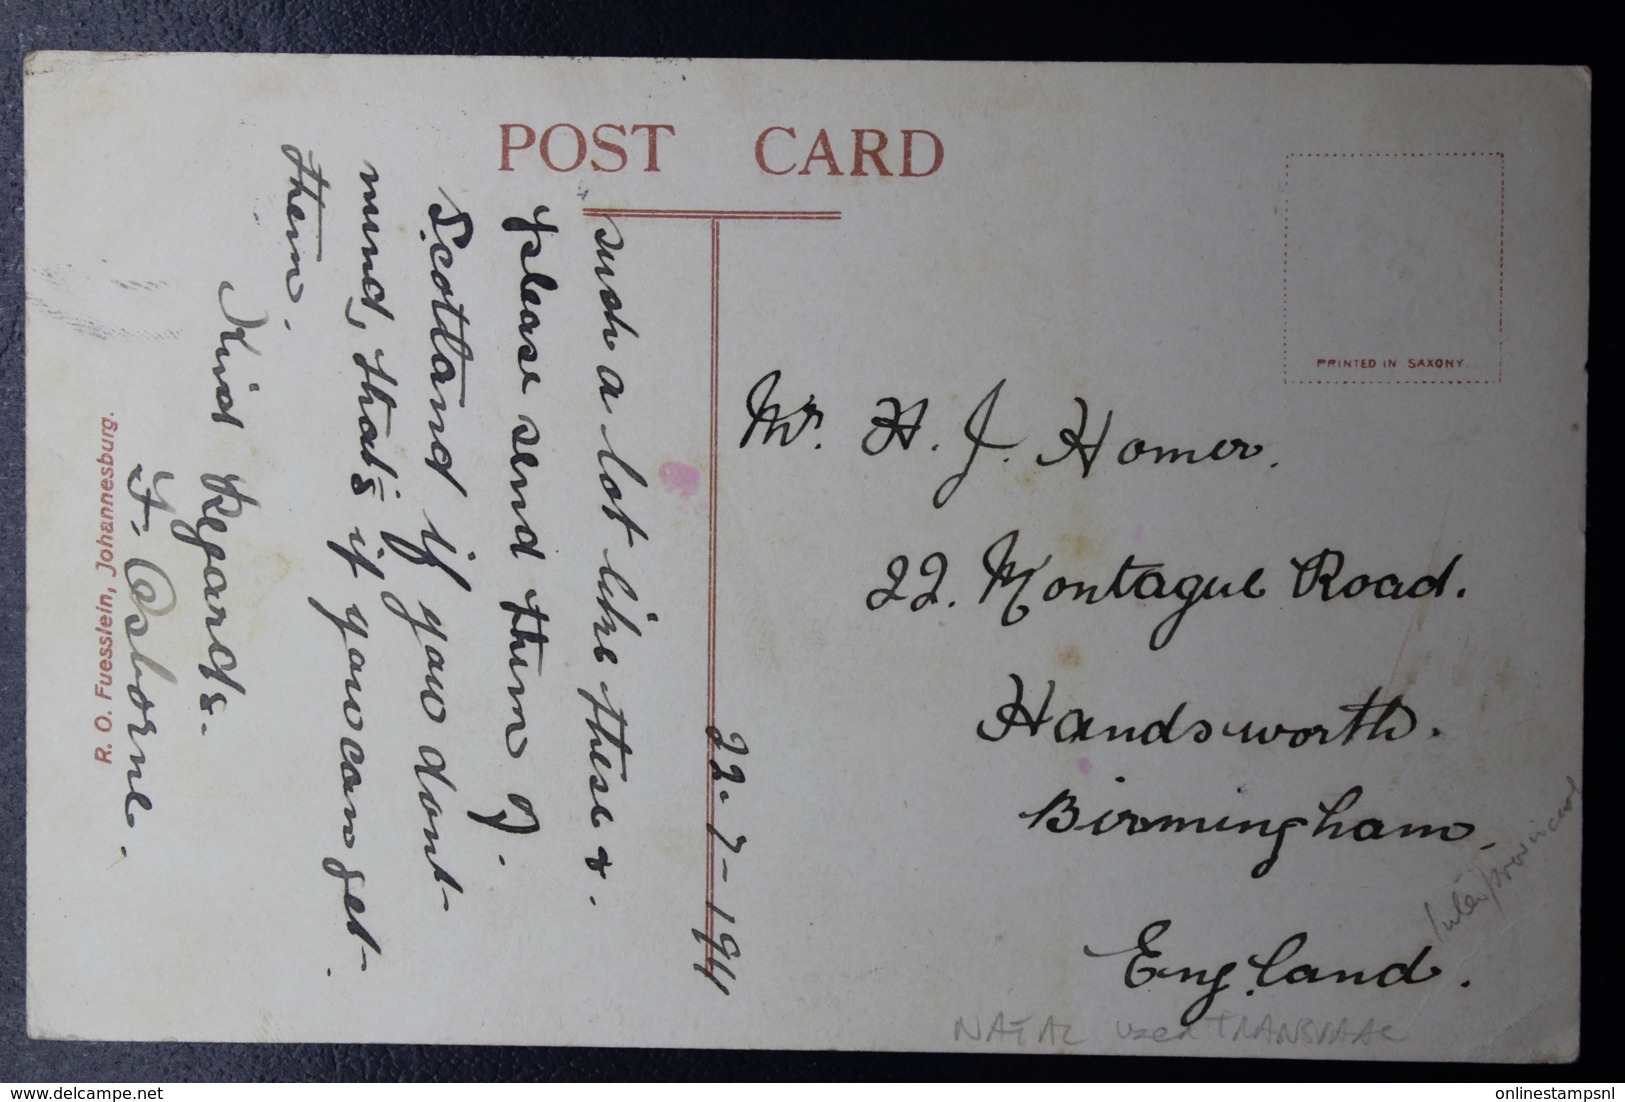 POST CARD
PRINTED IN SAXONY.
22.7-1911
such a lot like these &.
please send them J.
Scotland if you dont
mind, thats if you can get.
them.
Kind Regards.
F. Osborne.
R. O. Fuesslein, Johannesburg.
Mr. H. J. Homer.
22. Montague Road.
Handsworth.
Birmingham.
England.
Interprovincial
NATAL used TRANSVAAL
delcampe.net
onlinestampsnl